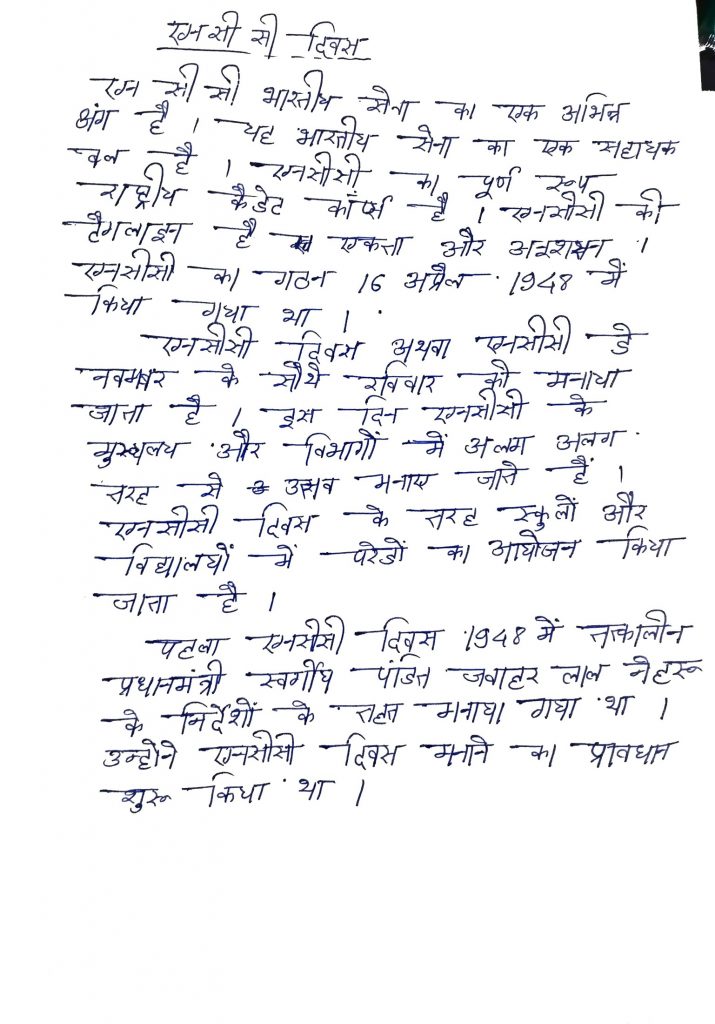 एन सी सी दिवस
एन सी सी भारतीय सेना का एक अभिन्न
अंग है । यह भारतीय सेना का एक सहायक
बल है । एनसीसी का पूर्ण रूप
राष्ट्रीय कैडेट कॉर्प्स है । एनसीसी की
टैगलाइन है एकता और अनुशासन ।
एनसीसी का गठन 16 अप्रैल 1948 में
किया गया था ।
एनसीसी दिवस अथवा एनसीसी डे
नवम्बर के चौथे रविवार को मनाया
जाता है । इस दिन एनसीसी के
मुख्यालय और विभागों में अलग अलग
तरह से उत्सव मनाए जाते हैं ।
एनसीसी दिवस के तरह स्कुलों और
विद्यालयों में परेडों का आयोजन किया
जाता है ।
पहला एनसीसी दिवस 1948 में तत्कालीन
प्रधानमंत्री स्वर्गीय पंडित जवाहर लाल नेहरू
के निर्देशों के तहत मनाया गया था ।
उन्होने एनसीसी दिवस मनाने का प्रावधान
शुरू किया था ।